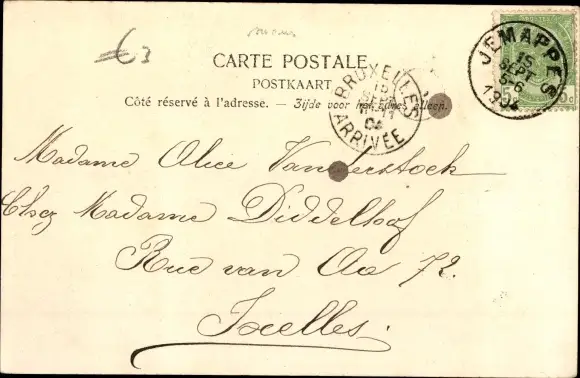 €3
CARTE POSTALE
POSTKAART
Côté réservé à l'adresse. — Zijde voor het adres alleen.
JEMAPPES
15
SEPT
5-6
1904
5
5c
BRUXELLES
15
SEPT
04
ARRIVÉE
Madame Alice Vanderstock
Chez Madame Diddelhof
Rue van Aa 72.
Ixelles.